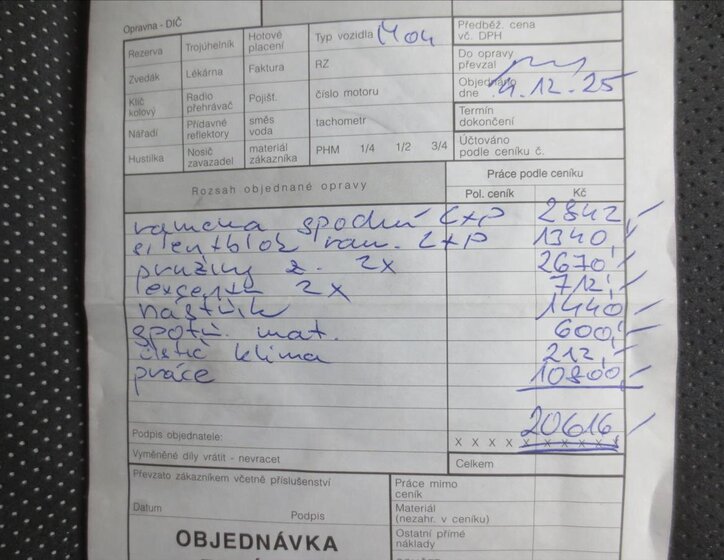 Opravna - DIČ
Rezerva Trojúhelník Hotové placení Typ vozidla Předběž. cena vč. DPH
Zvedák Lékárna Faktura RZ Do opravy převzal
Klíč kolový Radio přehrávač Pojišť. číslo motoru Objednáno dne 4.12.25
Nářadí Přídavné reflektory směs voda tachometr Termín dokončení
Hustilka Nosič zavazadel materiál zákazníka PHM 1/4 1/2 3/4 Účtováno podle ceníku č.
Rozsah objednané opravy Práce podle ceníku
Pol. ceník Kč
ramena spodní L+P 2842,-
silentblok ram. L+P 1340,-
pružiny z. 2x 2670,-
excentr 2x 712,-
1440,-
spotř. mat. 600,-
čistič klima 212,-
práce 10800,-
20616,-
Podpis objednatele: X X X X X X X X X X X
Vyměněné díly vrátit - nevracet Celkem
Převzato zákazníkem včetně příslušenství Práce mimo ceník
Datum Podpis Materiál (nezahr. v ceníku)
OBJEDNÁVKA Ostatní přímé náklady